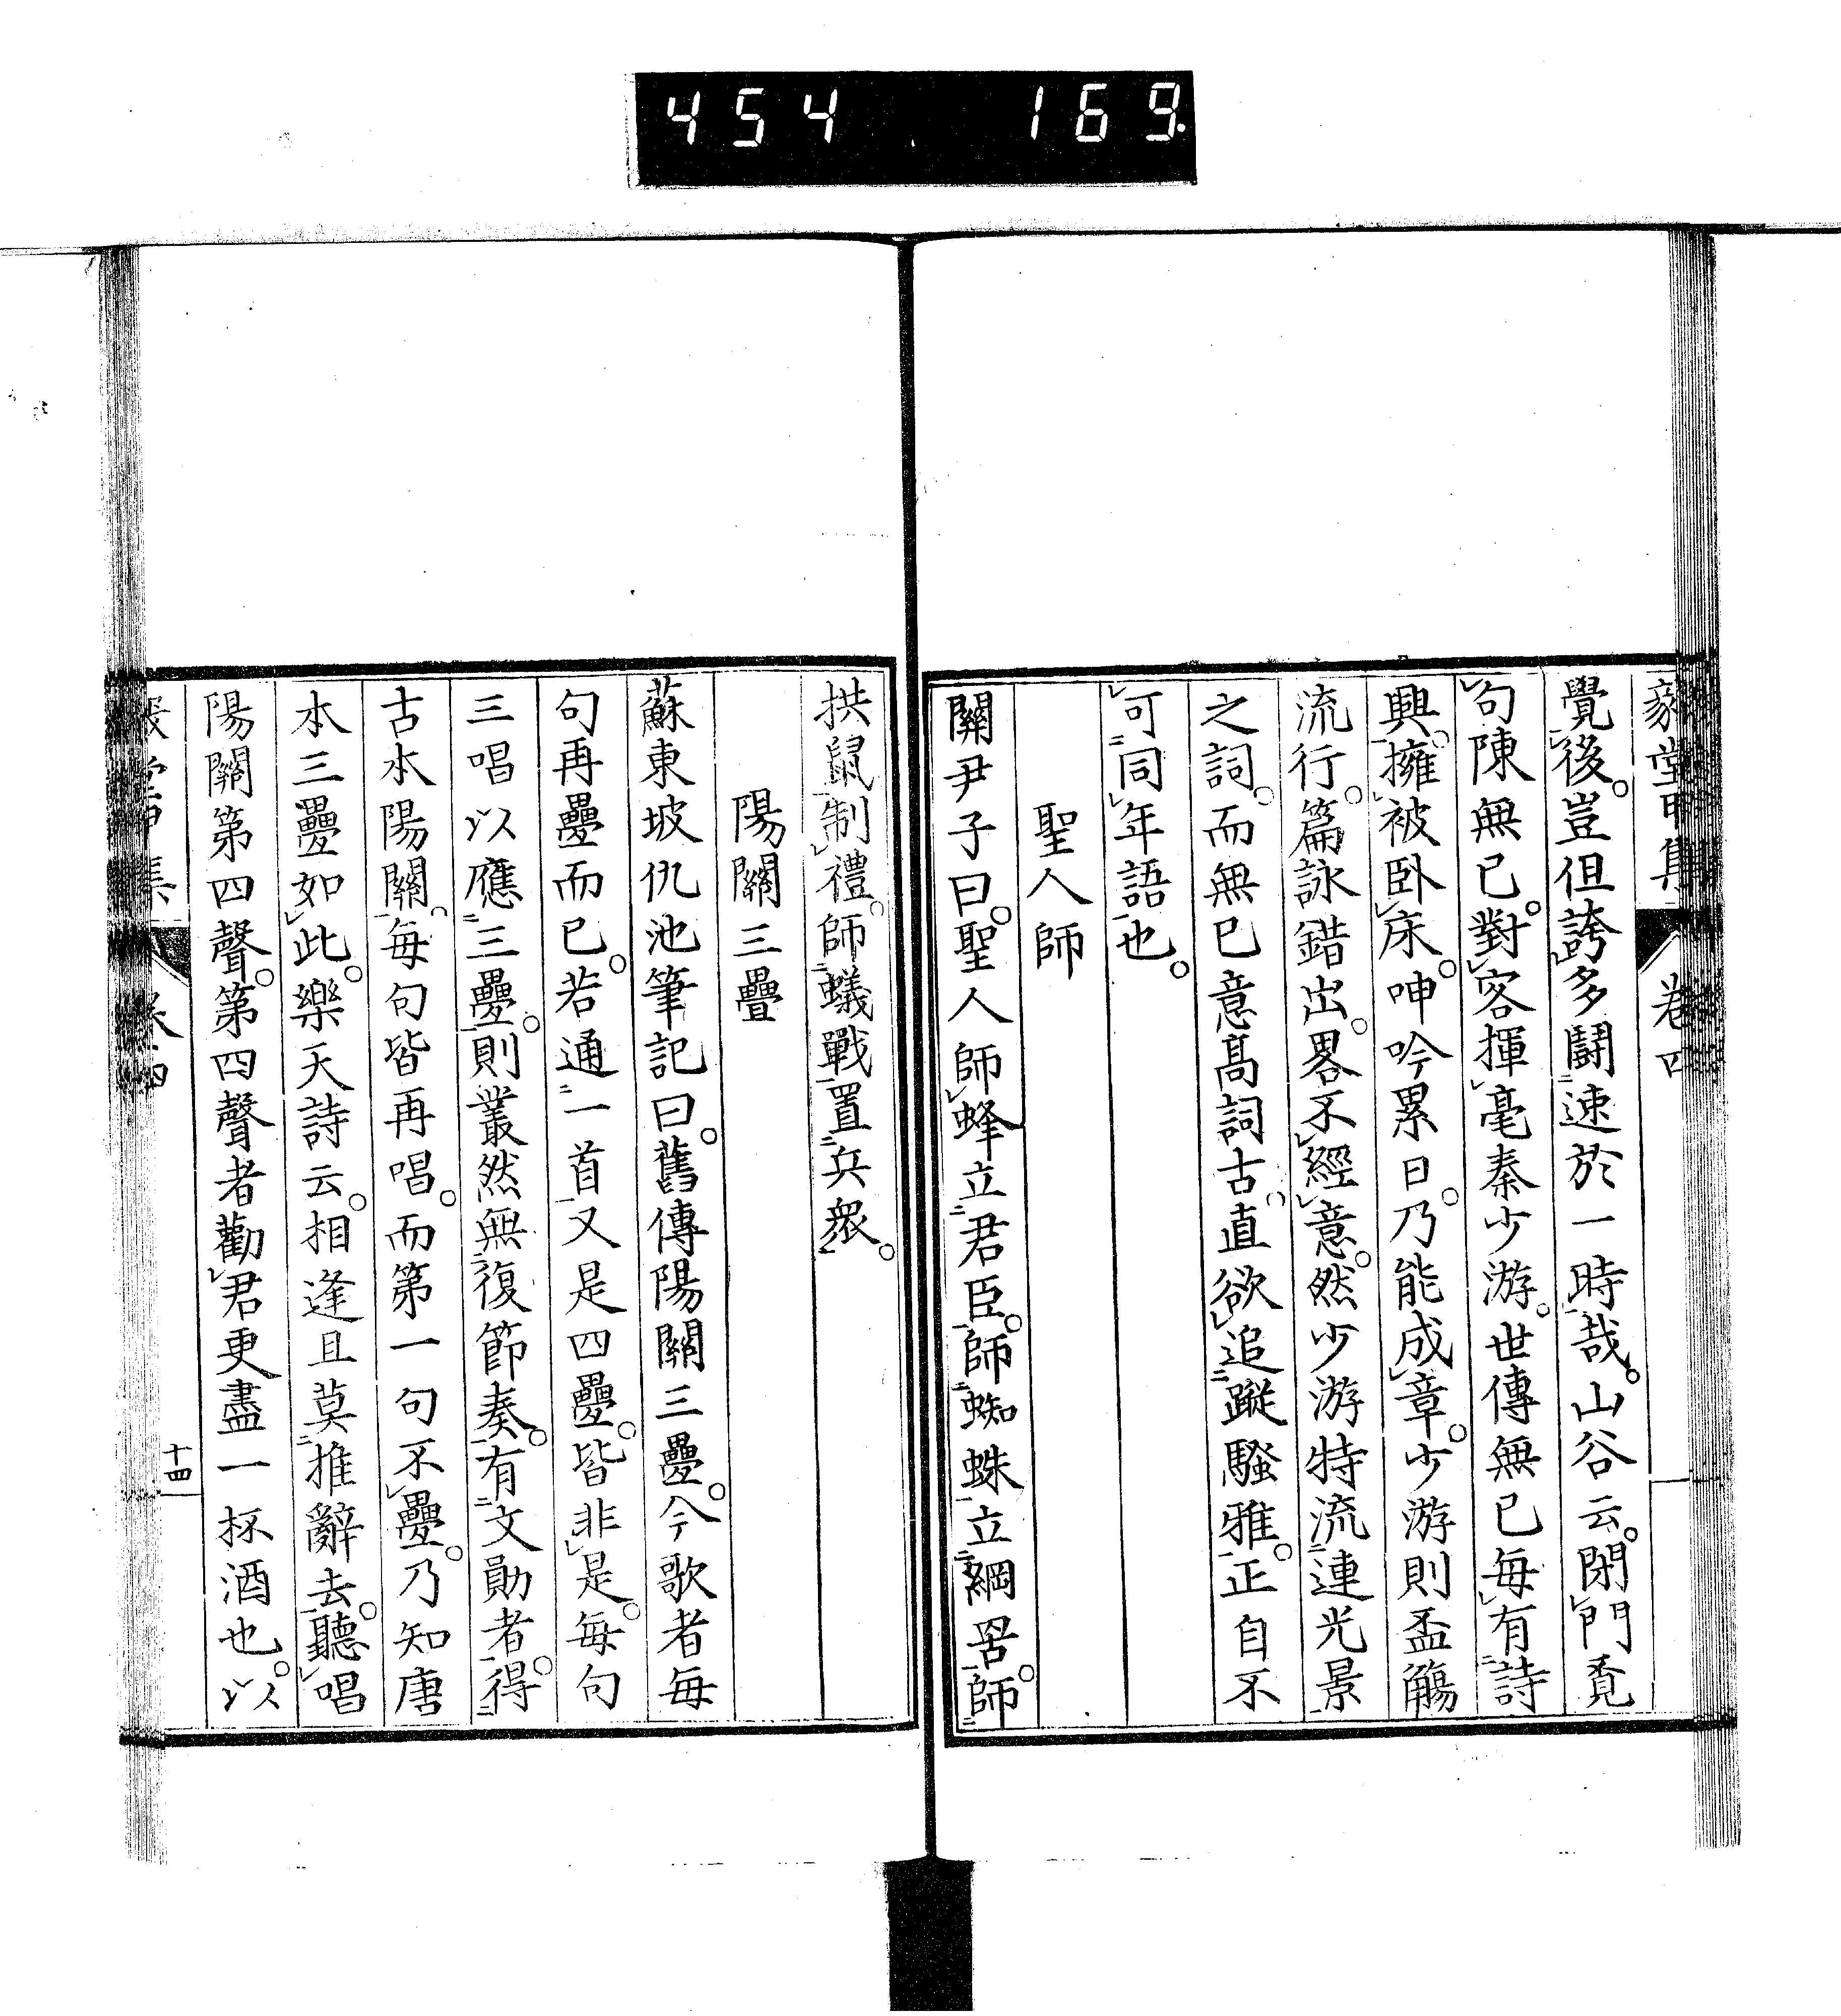 454 169
覺後。豈但誇多鬪速於一時哉。山谷云。閉門覓
句陳無已。對客揮毫秦少游。世傳無已每有詩
興。擁被臥床。呻吟累日。乃能成章。少游則盃觴
流行。篇詠錯出。畧不經意。然少游特流連光景
之詞。而無已意高詞古。直欲追蹤騷雅。正自不
可同年語也。
聖人師
關尹子曰。聖人師蜂立君臣。師蜘蛛立網罟。師
拱鼠制禮。師蟻戰置兵衆。
陽關三疊
蘇東坡仇池筆記曰。舊傳陽關三疊。今歌者每
句再疊而已。若通一首又是四疊。皆非是。每句
三唱以應三疊。則叢然無復節奏。有文勛者。得
古本陽關。每句皆再唱。而第一句不疊。乃知唐
本三疊如此。樂天詩云。相逢且莫推辭去。聽唱
陽關第四聲。第四聲者勸君更盡一杯酒也。以
十四